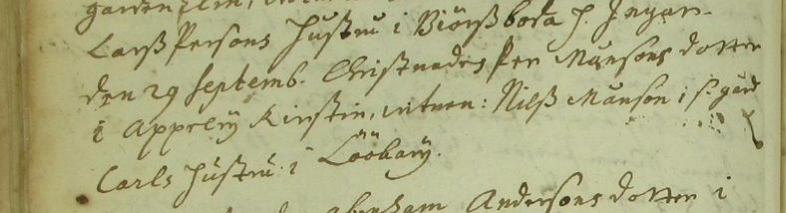 Larß Persons Hustru i Biörßboda h. Ingar.
den 29 Septemb. Christnades Per Månsons dotter
i Appelby Kirstin, witnen: Nilß Månson i
Carls Hustru i Lööbary.
Abraham Andersons dotter i